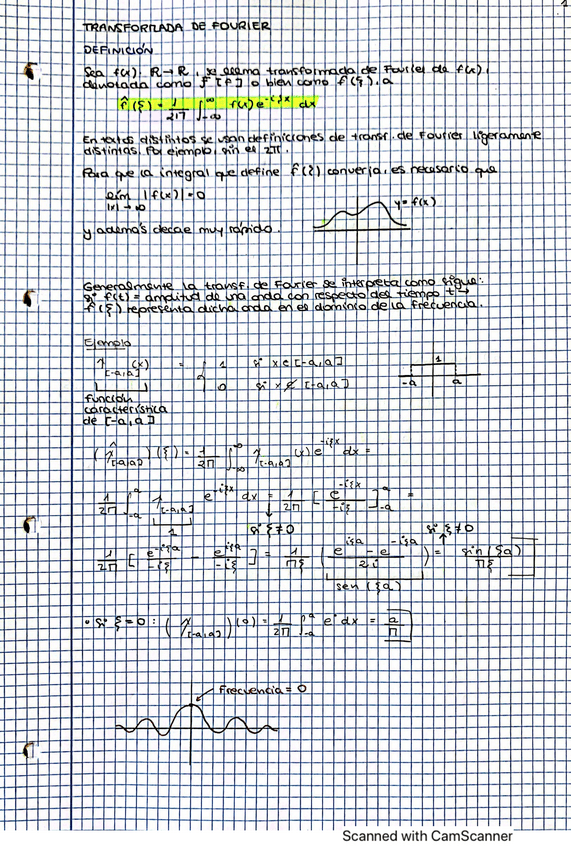 1
TRANSFORMADA DE FOURIER
DEFINICIÓN
Sea f(x): R→R, se llama transformada de Fourier de f(x),
denotada como F[f] o bien como f̂(ξ), a
f̂(ξ) = 1/2π ∫_{-∞}^{∞} f(x) e^{-iξx} dx
En textos distintos se usan definiciones de transf. de Fourier ligeramente
distintas. Por ejemplo, sin el 2π.
Para que la integral que define f̂(ξ) converja, es necesario que
lim_{|x|→∞} |f(x)| = 0
y además decae muy rápido.
y = f(x)
Generalmente la transf. de Fourier se interpreta como sigue:
si f(t) = amplitud de una onda con respecto del tiempo t →
f̂(ξ) representa dicha onda en el dominio de la frecuencia.
Ejemplo
1_{[-a,a]}(x) = { 1 si x ∈ [-a,a]
0 si x ∉ [-a,a]
1
-a a
función
característica
de [-a,a]
(1̂_{[-a,a]})(ξ) = 1/2π ∫_{-∞}^{∞} 1_{[-a,a]}(x) e^{-iξx} dx =
1/2π ∫_{-a}^{a} 1_{[-a,a]} e^{-iξx} dx = 1/2π [e^{-iξx}/-iξ]_{-a}^{a} =
1
si ξ≠0
si ξ≠0
1/2π [e^{-iξa}/-iξ - e^{iξa}/-iξ] = 1/πξ (e^{iξa} - e^{-iξa}/2i) = sin(ξa)/πξ
sen(ξa)
• si ξ=0: (1̂_{[-a,a]})(0) = 1/2π ∫_{-a}^{a} e^{0} dx = a/π
Frecuencia = 0
Scanned with CamScanner